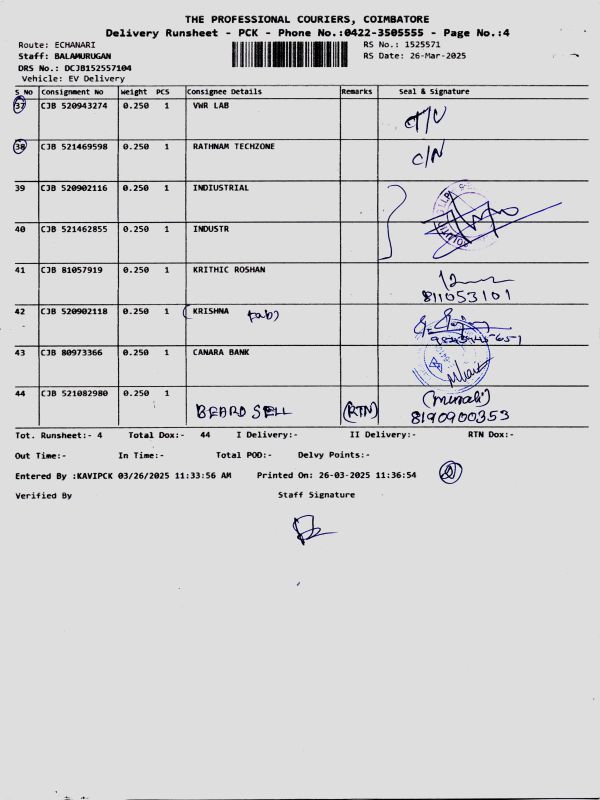 THE PROFESSIONAL COURIERS, COIMBATORE
Delivery Runsheet - PCK - Phone No.:0422-3505555 - Page No.:4
Route: ECHANARI RS No.: 1525571
Staff: BALAMURUGAN RS Date: 26-Mar-2025
DRS No.: DCJB152557104
Vehicle: EV Delivery
S_No Consignment No Weight PCS Consignee Details Remarks Seal & Signature
37 CJB 520943274 0.250 1 VWR LAB
38 CJB 521469598 0.250 1 RATHNAM TECHZONE C/N
39 CJB 520902116 0.250 1 INDIUSTRIAL
40 CJB 521462855 0.250 1 INDUSTR
41 CJB 81057919 0.250 1 KRITHIC ROSHAN
811053101
42 CJB 520902118 0.250 1 KRISHNA
43 CJB 80973366 0.250 1 CANARA BANK
44 CJB 521082980 0.250 1 (Murali)
BEARD SELL (RTN) 8190900353
Tot. Runsheet:- 4 Total Dox:- 44 I Delivery:- II Delivery:- RTN Dox:-
Out Time:- In Time:- Total POD:- Delvy Points:-
Entered By :KAVIPCK 03/26/2025 11:33:56 AM Printed On: 26-03-2025 11:36:54
Verified By Staff Signature